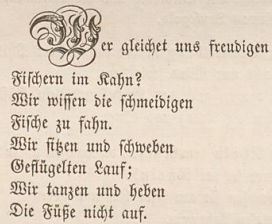 Wer gleichet uns freudigen
Fischern im Kahn?
Wir wissen die schmeidigen
Fische zu fahn.
Wir sitzen und schweben
Geflügelten Lauf;
Wir tanzen und heben
Die Füße nicht auf.